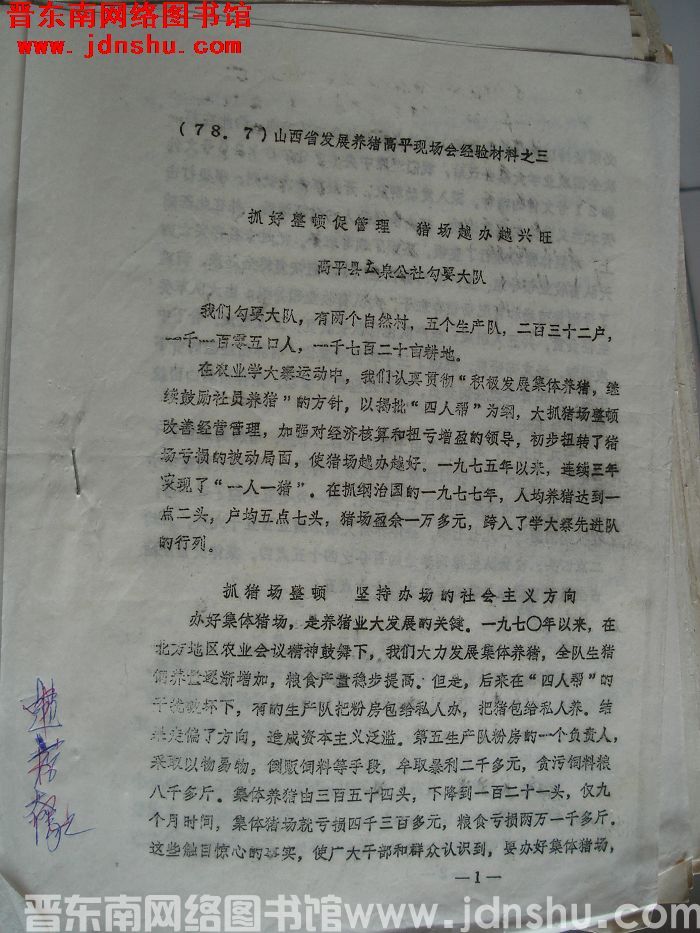 晋东南网络图书馆
www.jdnshu.com
(78.7)山西省发展养猪高平现场会经验材料之三
抓好整顿促管理 猪场越办越兴旺
高平县 泉公社勾要大队
我们勾要大队，有两个自然村，五个生产队，二百三十二户，
一千一百零五口人，一千七百二十亩耕地。
在农业学大寨运动中，我们认真贯彻“积极发展集体养猪，继
续鼓励社员养猪”的方针，以揭批“四人帮”为纲，大抓猪场整顿
改善经营管理，加强对经济核算和扭亏增盈的领导，初步扭转了猪
场亏损的被动局面，使猪场越办越好。一九七五年以来，连续三年
实现了“一人一猪”。在抓纲治国的一九七七年，人均养猪达到一
点二头，户均五点七头，猪场盈余一万多元，跨入了学大寨先进队
的行列。
抓猪场整顿 坚持办场的社会主义方向
办好集体猪场，是养猪业大发展的关键。一九七〇年以来，在
北方地区农业会议精神鼓舞下，我们大力发展集体养猪，全队生猪
饲养量逐渐增加，粮食产量稳步提高。但是，后来在“四人帮”的
干扰破坏下，有的生产队把粉房包给私人办，把猪包给私人养。结
果走偏了方向，造成资本主义泛滥。第五生产队粉房的一个负责人，
采取以物易物，倒贩饲料等手段，牟取暴利二千多元，贪污饲料粮
八千多斤。集体养猪由三百五十四头，下降到一百二十一头，仅九
个月时间，集体猪场就亏损四千三百多元，粮食亏损两万一千多斤。
这些触目惊心的事实，使广大干部和群众认识到，要办好集体猪场，
—1—
晋东南网络图书馆www.jdnshu.com